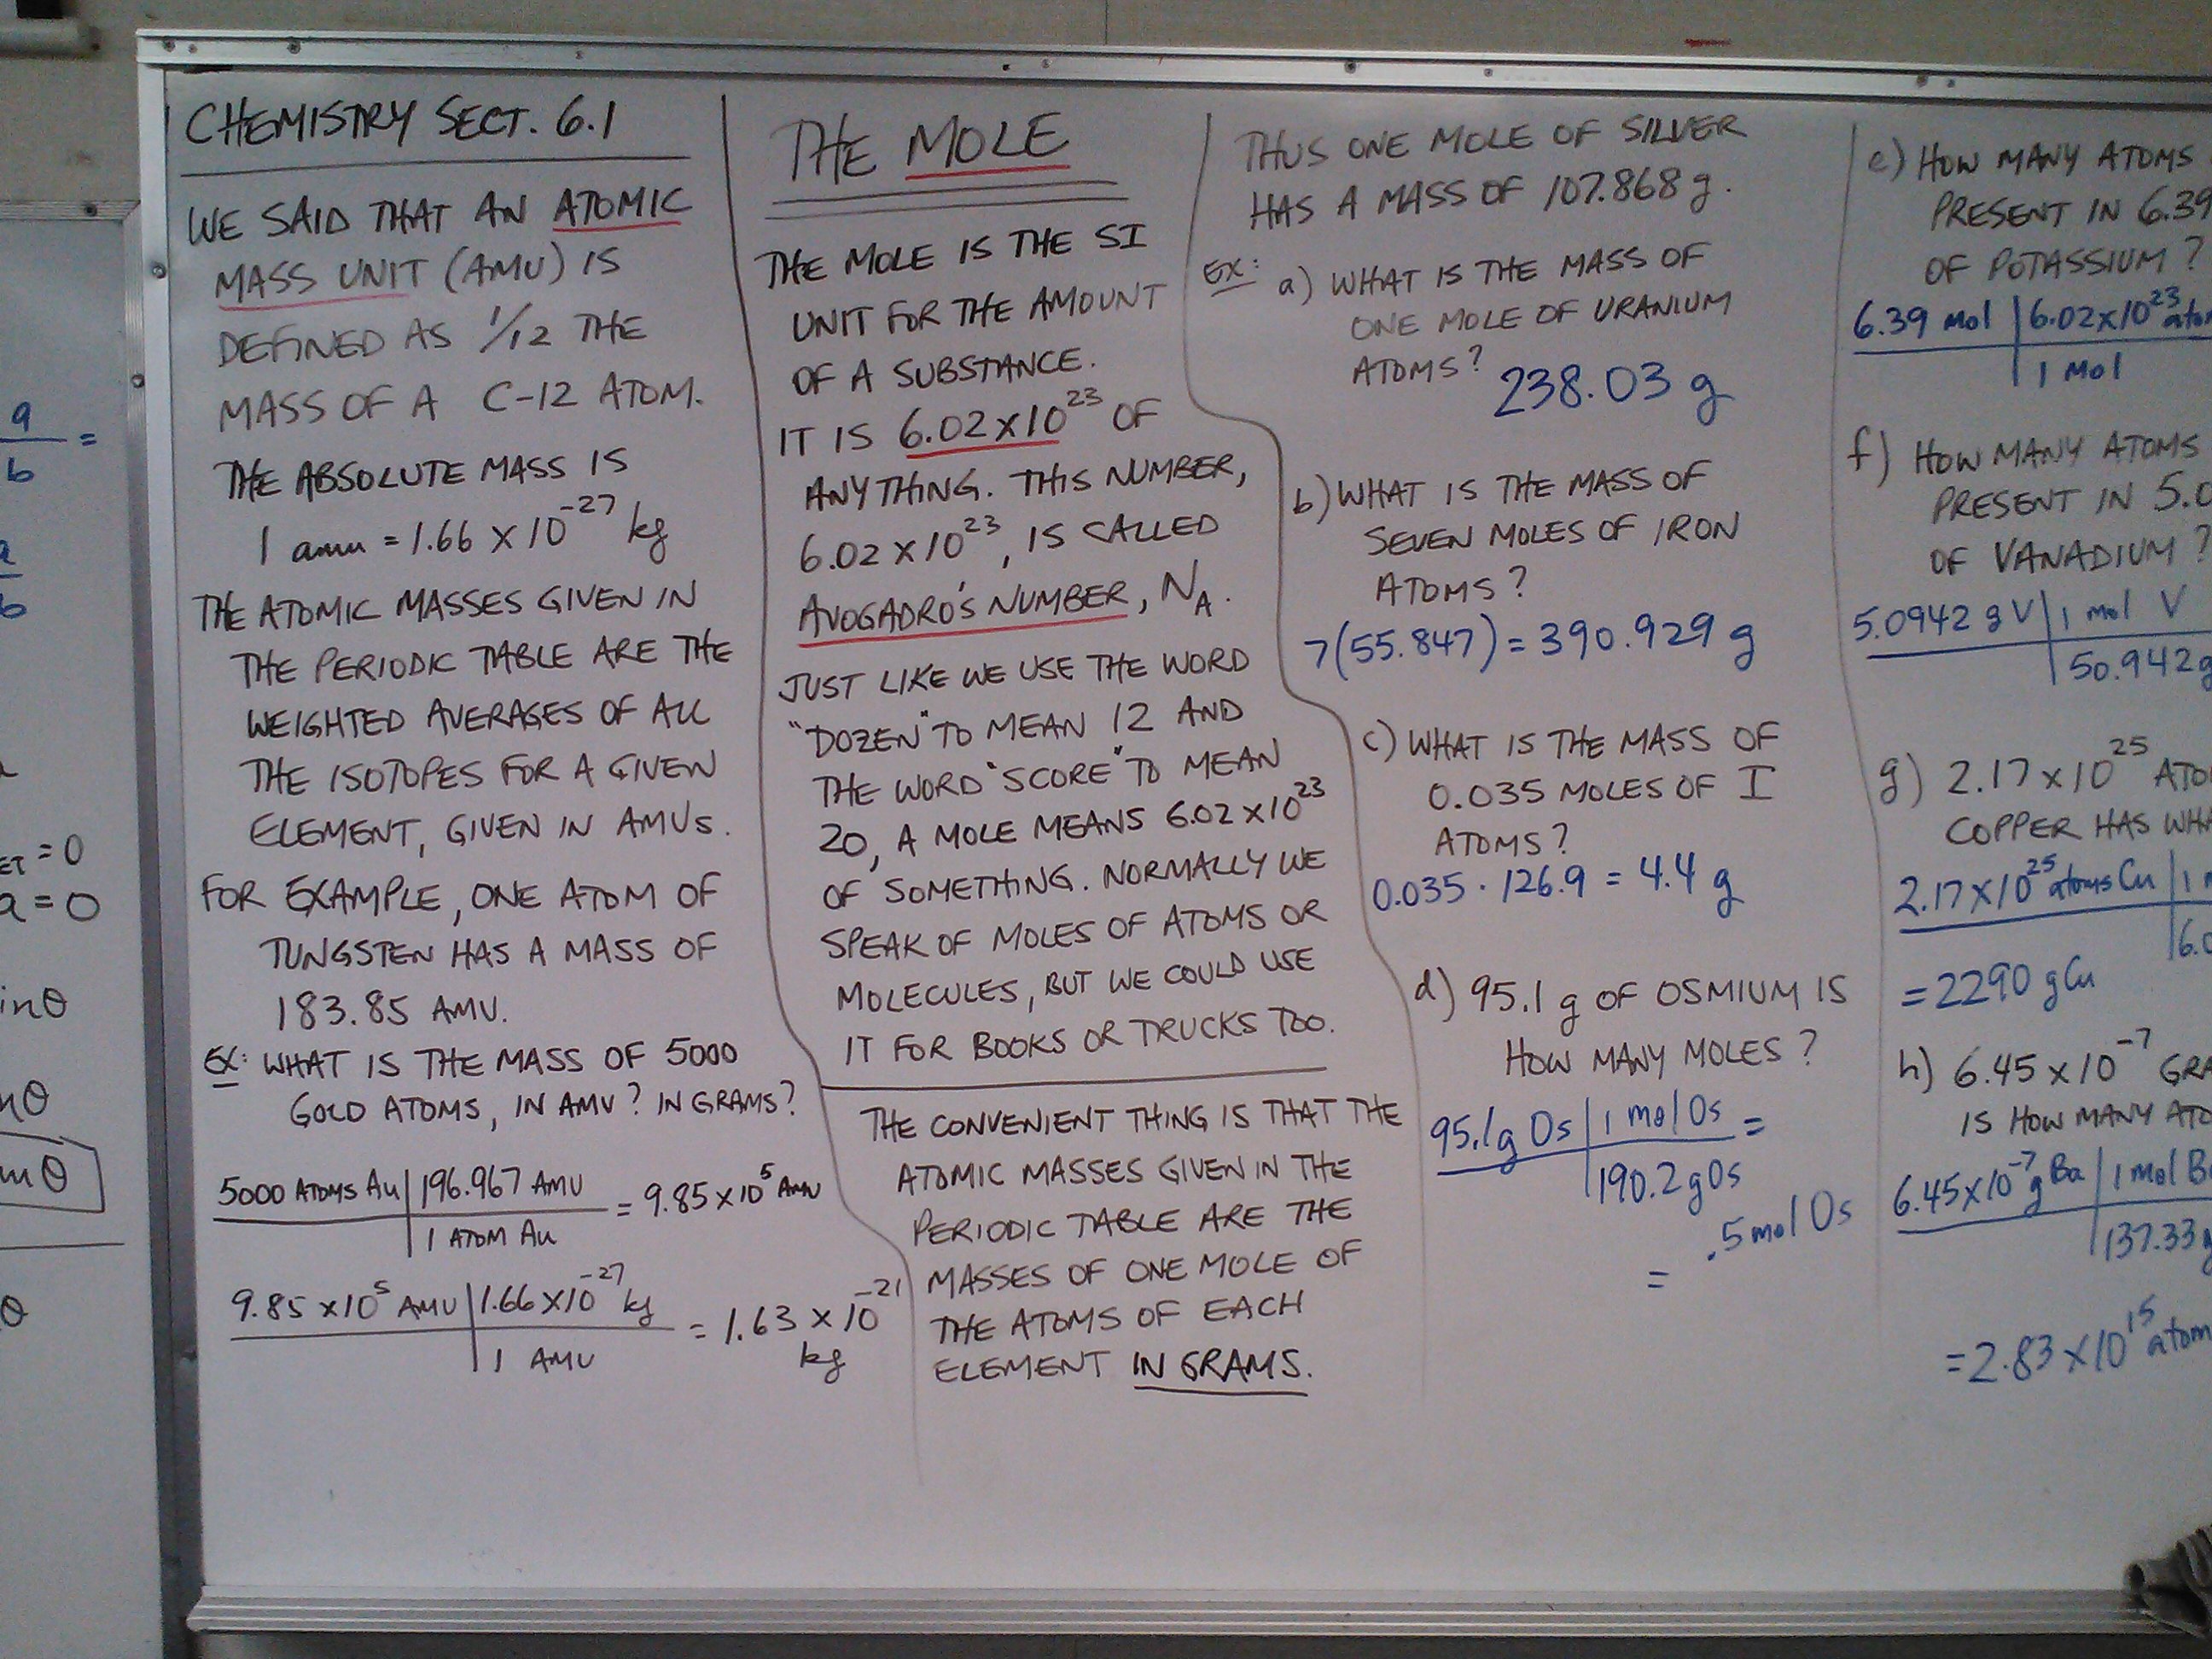 CHEMISTRY SECT. 6.1
WE SAID THAT AN ATOMIC
MASS UNIT (AMU) IS
DEFINED AS 1/12 THE
MASS OF A C-12 ATOM.
THE ABSOLUTE MASS IS
1 amu = 1.66 x 10⁻²⁷ kg
THE ATOMIC MASSES GIVEN IN
THE PERIODIC TABLE ARE THE
WEIGHTED AVERAGES OF ALL
THE ISOTOPES FOR A GIVEN
ELEMENT, GIVEN IN AMUs.
FOR EXAMPLE, ONE ATOM OF
TUNGSTEN HAS A MASS OF
183.85 AMU.
EX: WHAT IS THE MASS OF 5000
GOLD ATOMS, IN AMU? IN GRAMS?
5000 ATOMS Au | 196.967 AMU
1 ATOM Au
= 9.85 x 10⁵ AMU
9.85 x 10⁵ AMU | 1.66 x 10⁻²⁷ kg
1 AMU
= 1.63 x 10⁻²¹
kg
THE MOLE
THE MOLE IS THE SI
UNIT FOR THE AMOUNT
OF A SUBSTANCE.
IT IS 6.02 x 10²³ OF
ANYTHING. THIS NUMBER,
6.02 x 10²³, IS CALLED
AVOGADRO'S NUMBER, N_A.
JUST LIKE WE USE THE WORD
"DOZEN" TO MEAN 12 AND
THE WORD "SCORE" TO MEAN
20, A MOLE MEANS 6.02 x 10²³
OF SOMETHING. NORMALLY WE
SPEAK OF MOLES OF ATOMS OR
MOLECULES, BUT WE COULD USE
IT FOR BOOKS OR TRUCKS TOO.
THE CONVENIENT THING IS THAT THE
ATOMIC MASSES GIVEN IN THE
PERIODIC TABLE ARE THE
MASSES OF ONE MOLE OF
THE ATOMS OF EACH
ELEMENT IN GRAMS.
THUS ONE MOLE OF SILVER
HAS A MASS OF 107.868 g.
EX: a) WHAT IS THE MASS OF
ONE MOLE OF URANIUM
ATOMS?
238.03 g
b) WHAT IS THE MASS OF
SEVEN MOLES OF IRON
ATOMS?
7(55.847) = 390.929 g
c) WHAT IS THE MASS OF
0.035 MOLES OF I
ATOMS?
0.035 · 126.9 = 4.4 g
d) 95.1 g OF OSMIUM IS
HOW MANY MOLES?
95.1g Os | 1 mol Os =
190.2 g Os
= .5 mol Os
e) HOW MANY ATOMS
PRESENT IN 6.39
OF POTASSIUM?
6.39 mol | 6.02x10²³ atom
1 mol
f) HOW MANY ATOMS
PRESENT IN 5.0
OF VANADIUM?
5.0942 g V | 1 mol V
50.942 g
g) 2.17 x 10²⁵ ATO
COPPER HAS WHA
2.17 x 10²⁵ atoms Cu | 1 m
6.0
= 2290 g Cu
h) 6.45 x 10⁻⁷ GRA
IS HOW MANY ATO
6.45 x 10⁻⁷ g Ba | 1 mol Ba
137.33 g
= 2.83 x 10¹⁵ atom
a
b
=
a
b
ET = 0
a = 0
inθ
nθ
mθ
θ